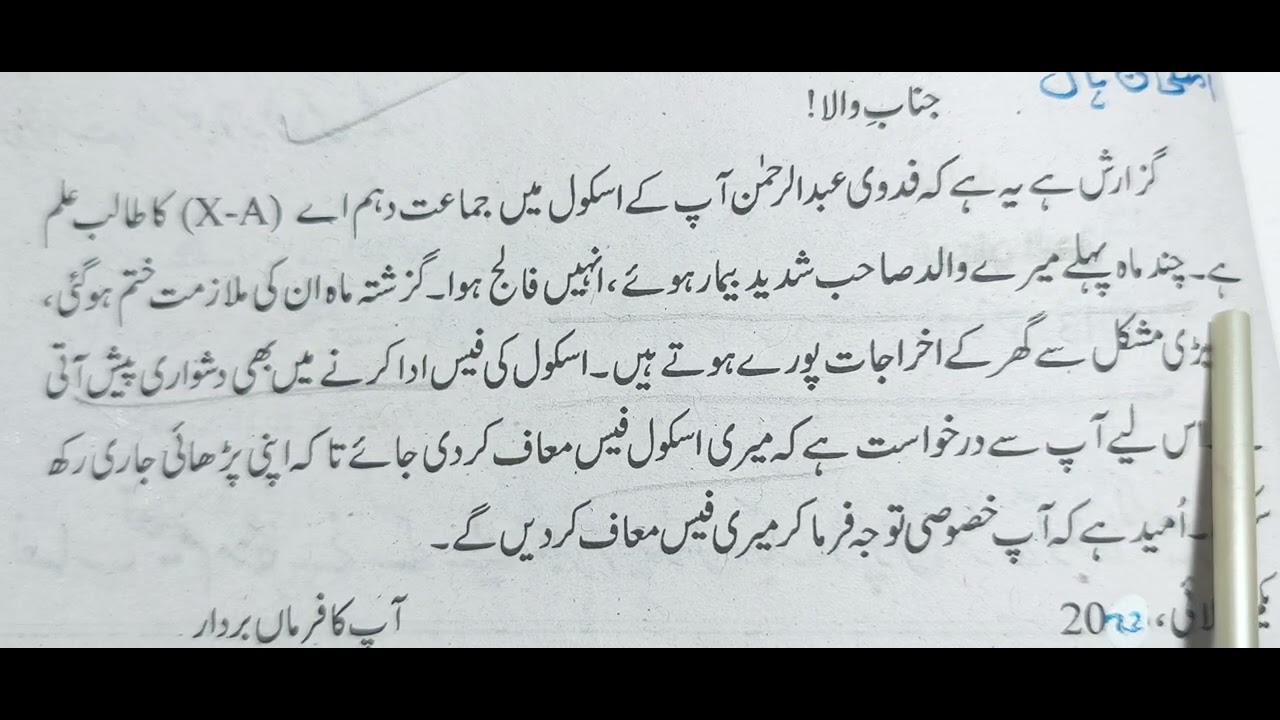 امتحان ہال
جنابِ والا!
گزارش ہے یہ ہے کہ فدوی عبدالرحمٰن آپ کے اسکول میں جماعت دہم اے (X-A) کا طالب علم
ہے۔ چند ماہ پہلے میرے والد صاحب شدید بیمار ہوئے، انہیں فالج ہوا۔ گزشتہ ماہ ان کی ملازمت ختم ہوگئی،
بڑی مشکل سے گھر کے اخراجات پورے ہوتے ہیں۔ اسکول کی فیس ادا کرنے میں بھی دشواری پیش آتی
اس لیے آپ سے درخواست ہے کہ میری اسکول فیس معاف کردی جائے تاکہ اپنی پڑھائی جاری رکھ
۔ اُمید ہے کہ آپ خصوصی توجہ فرما کر میری فیس معاف کردیں گے۔
، 2022
آپ کا فرماں بردار